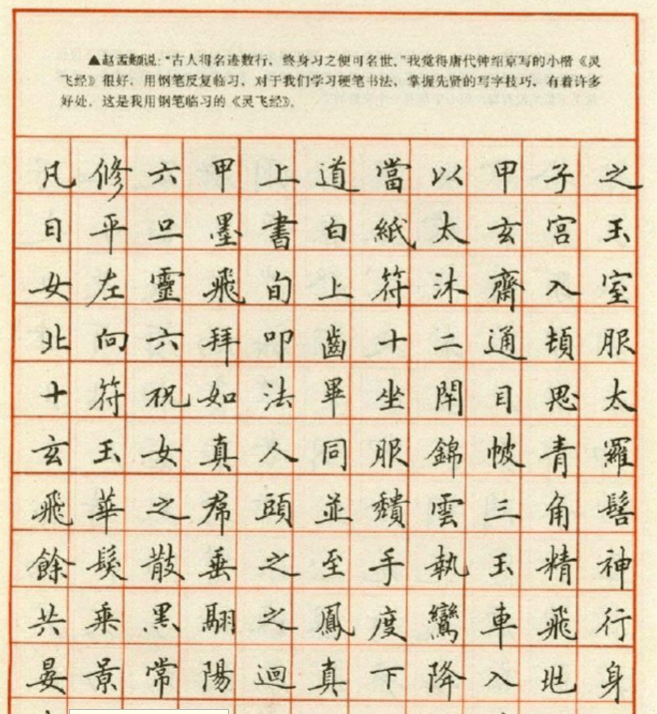 ▲赵孟頫说：“古人得名迹数行，终身习之便可名世。”我觉得唐代钟绍京写的小楷《灵
飞经》很好，用钢笔反复临习，对于我们学习硬笔书法，掌握先贤的写字技巧，有着许多
好处，这是我用钢笔临习的《灵飞经》。
凡修六甲上道當以甲子之
日平旦墨書白紙太玄宮玉
女左靈飛旬上符沐齋入室
北向六拜叩齒十二通頓服
十符祝如法畢坐閇目思太
玄玉女真人同服錦帔青羅
飛華之帬頭並頹雲三角髻
餘髮散垂之至手執玉精神
共乘黑翮之鳳度鸞車飛行
晏景常陽迴真下降入兆身